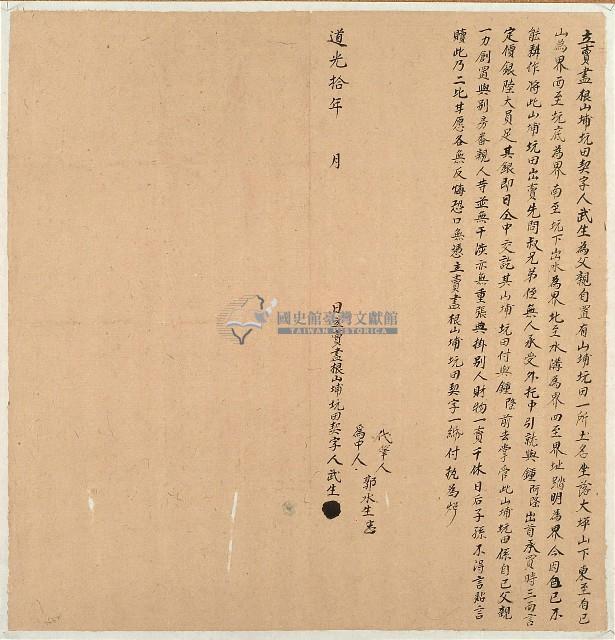 立賣盡根山埔坑田契字人武生為父親自置有山埔坑田一所土名坐落大坪山下東至自己
山為界西至坑底為界南至坑下出水為界北至水溝為界四至界址踏明為界今因自己不
能耕作将此山埔坑田出賣先問叔兄弟侄無人承受外托中引就與鍾阿隆出首承買時三面言
定價銀陸大員足其銀即日仝中交訖其山埔坑田付與鍾隆前去掌管此山埔坑田係自己父親
一力創置與別房番親人等並無干涉亦無重張典掛別人財物一賣千休日后子孫不得言貼言
贖此乃二比甘愿各無反悔恐口無憑立賣盡根山埔坑田契字一紙付執為炤
代筆人
為中人 郭水生
道光拾年 月 日立賣盡根山埔坑田契字人武生
國史館臺灣文獻館
TAIWAN HISTORICA